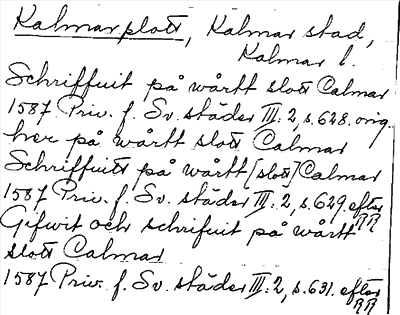 Kalmar slott, Kalmar stad,
Kalmar l.
Schriffuit på wårtt slott Calmar
1587 Priv. f. Sv. städer III: 2, s. 628. orig.
her på wårtt slott Calmar
Schriffuitt på wårtt [slott] Calmar
1587 Priv. f. Sv. städer III: 2, s. 629. efter RR
Gifwit och schrifuit på wårtt
slott Calmar
1587 Priv. f. Sv. städer III: 2, s. 631. efter RR